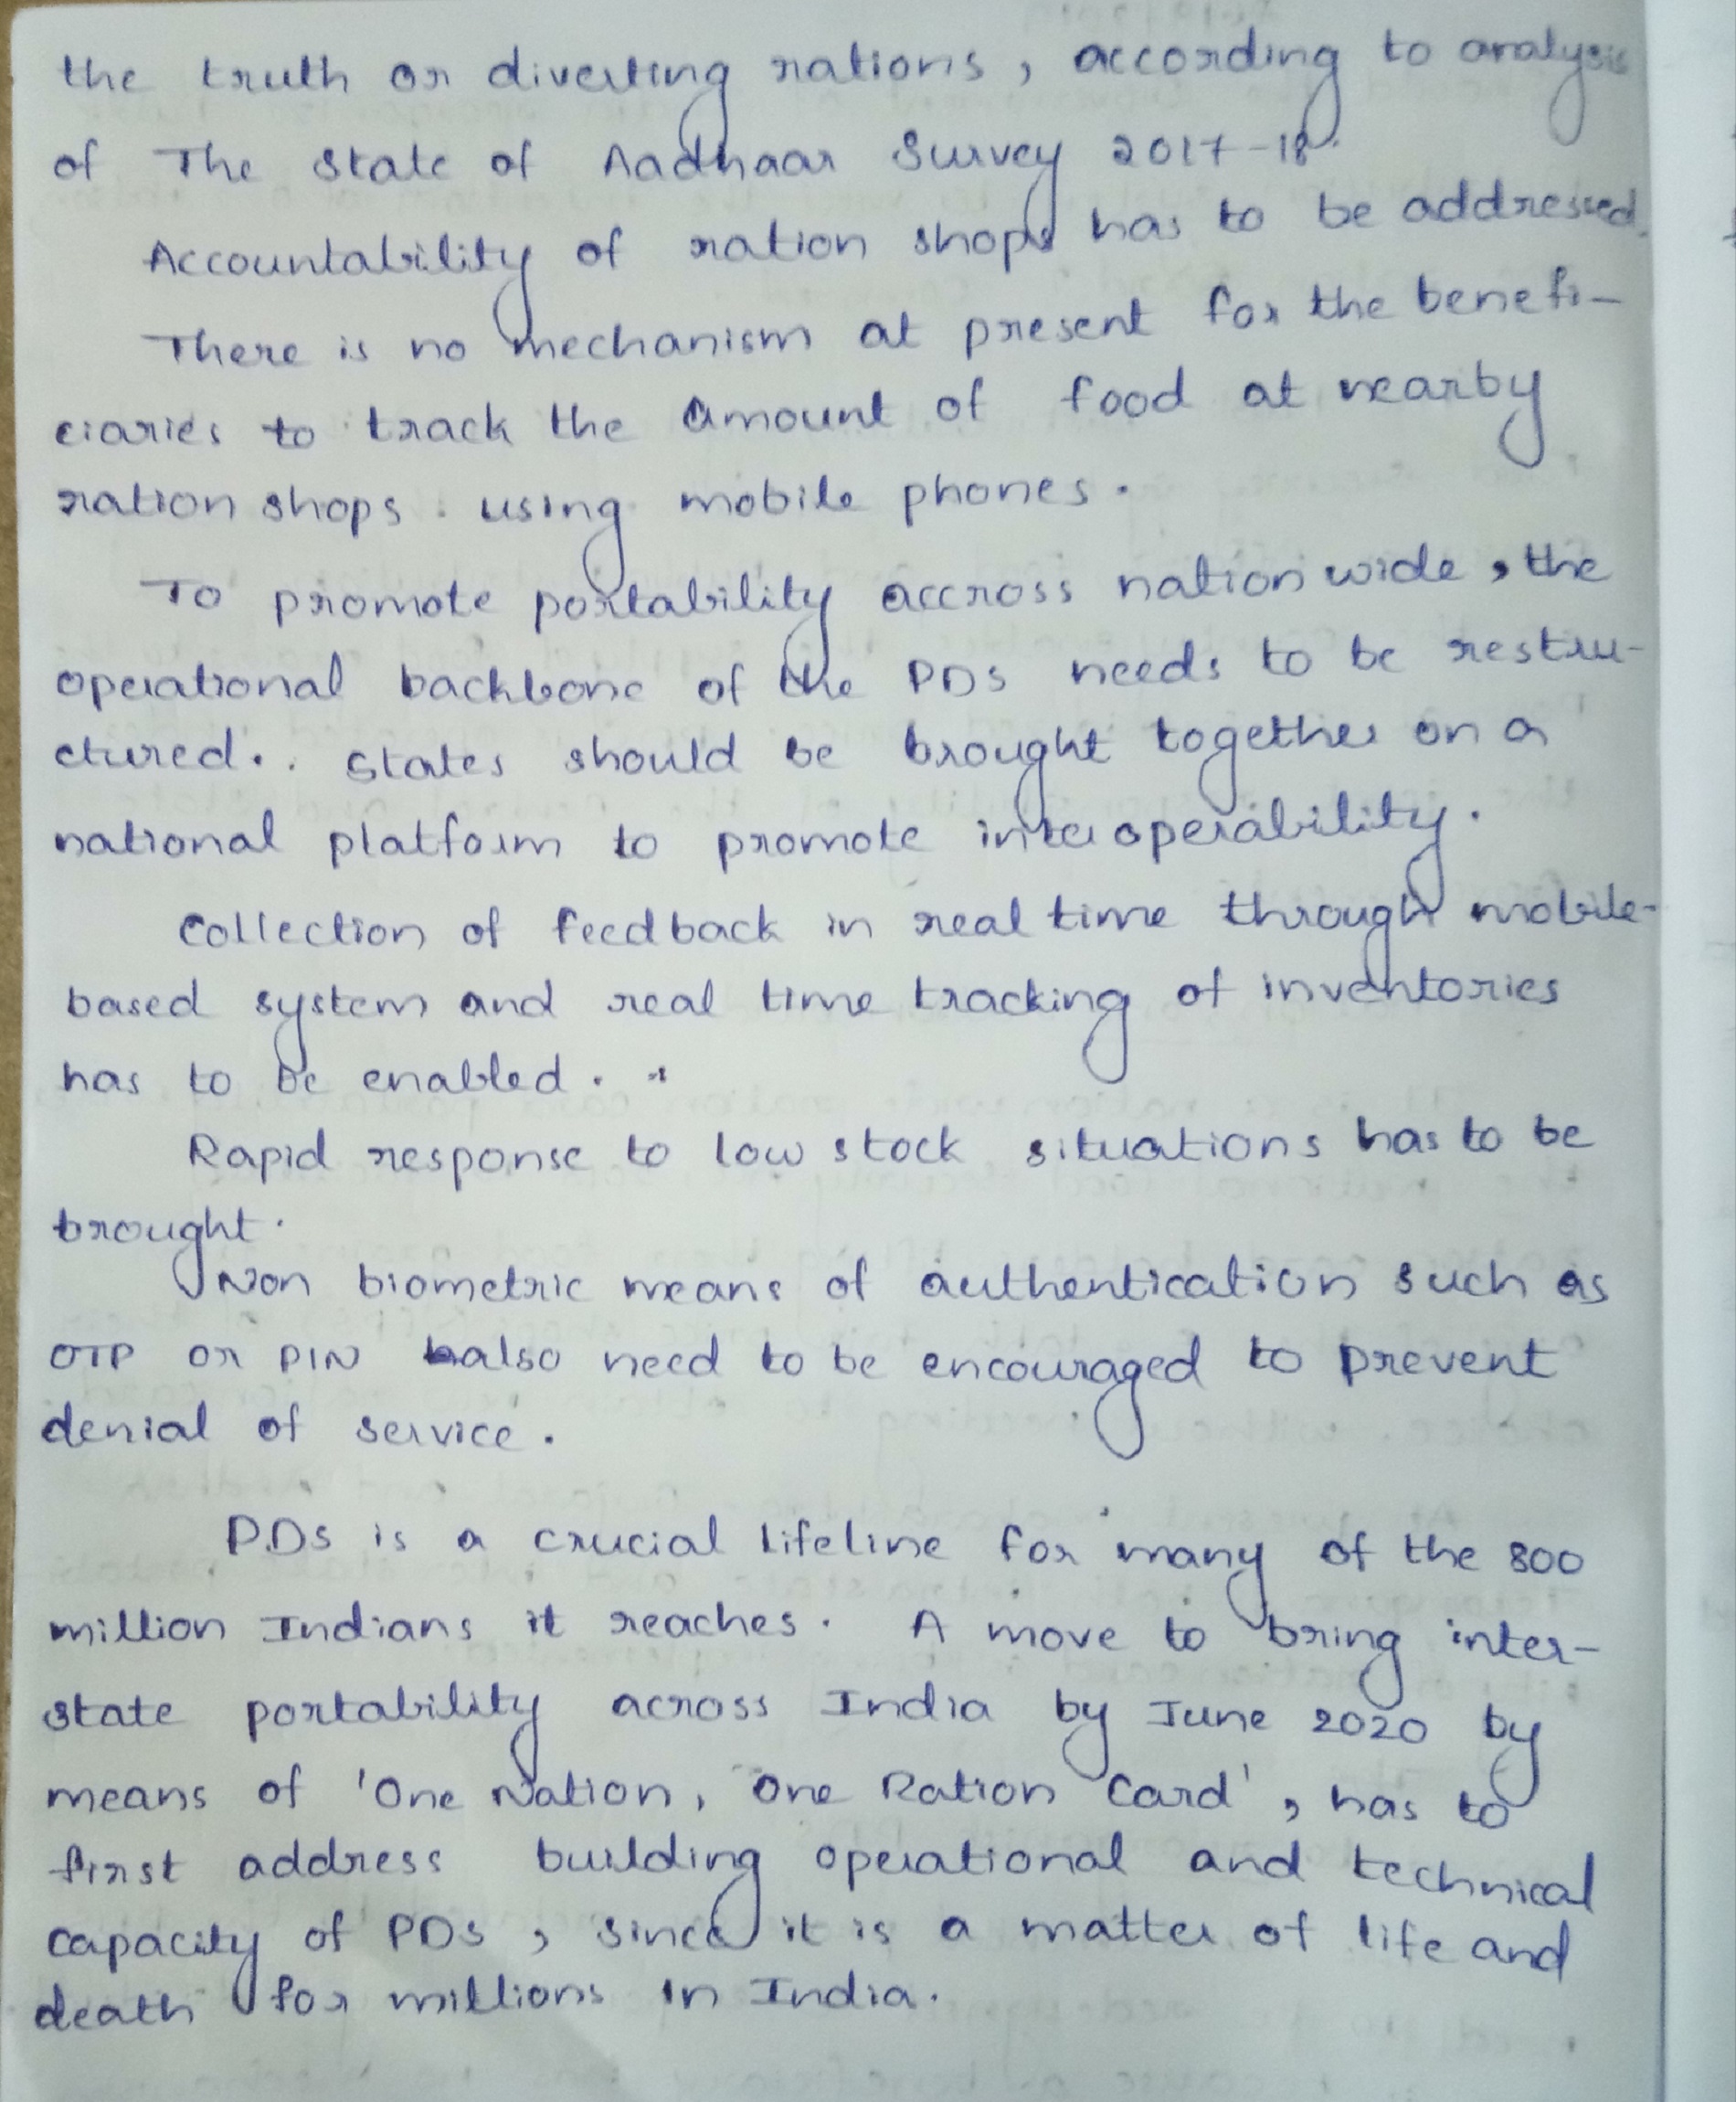 the truth or diverting rations, according to analysis
of The State of Aadhaar Survey 2017-18.
Accountability of ration shops has to be addressed.
There is no mechanism at present for the benefi-
ciaries to track the amount of food at nearby
ration shops using mobile phones.
To promote portability accross nation wide, the
operational backbone of the PDS needs to be restru-
ctured.. States should be brought together on a
national platform to promote interoperability.
Collection of feedback in real time through mobile-
based system and real time tracking of inventories
has to be enabled.
Rapid response to low stock situations has to be
brought.
Non biometric means of authentication such as
OTP or PIN also need to be encouraged to prevent
denial of service.
PDS is a crucial lifeline for many of the 800
million Indians it reaches. A move to bring inter-
state portability across India by June 2020 by
means of 'One Nation, One Ration Card', has to
first address building operational and technical
capacity of PDS, since it is a matter of life and
death for millions in India.